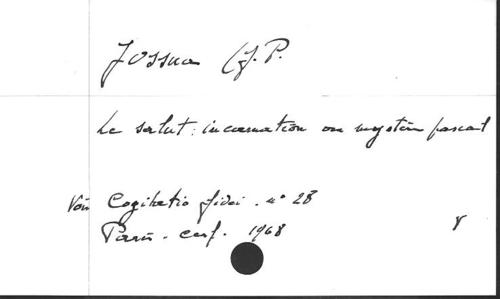 Jossua (J.P.
Le salut : incarnation ou mystère pascal
Voir Cogitatio fidei . n° 28
Paris . cerf . 1968
8